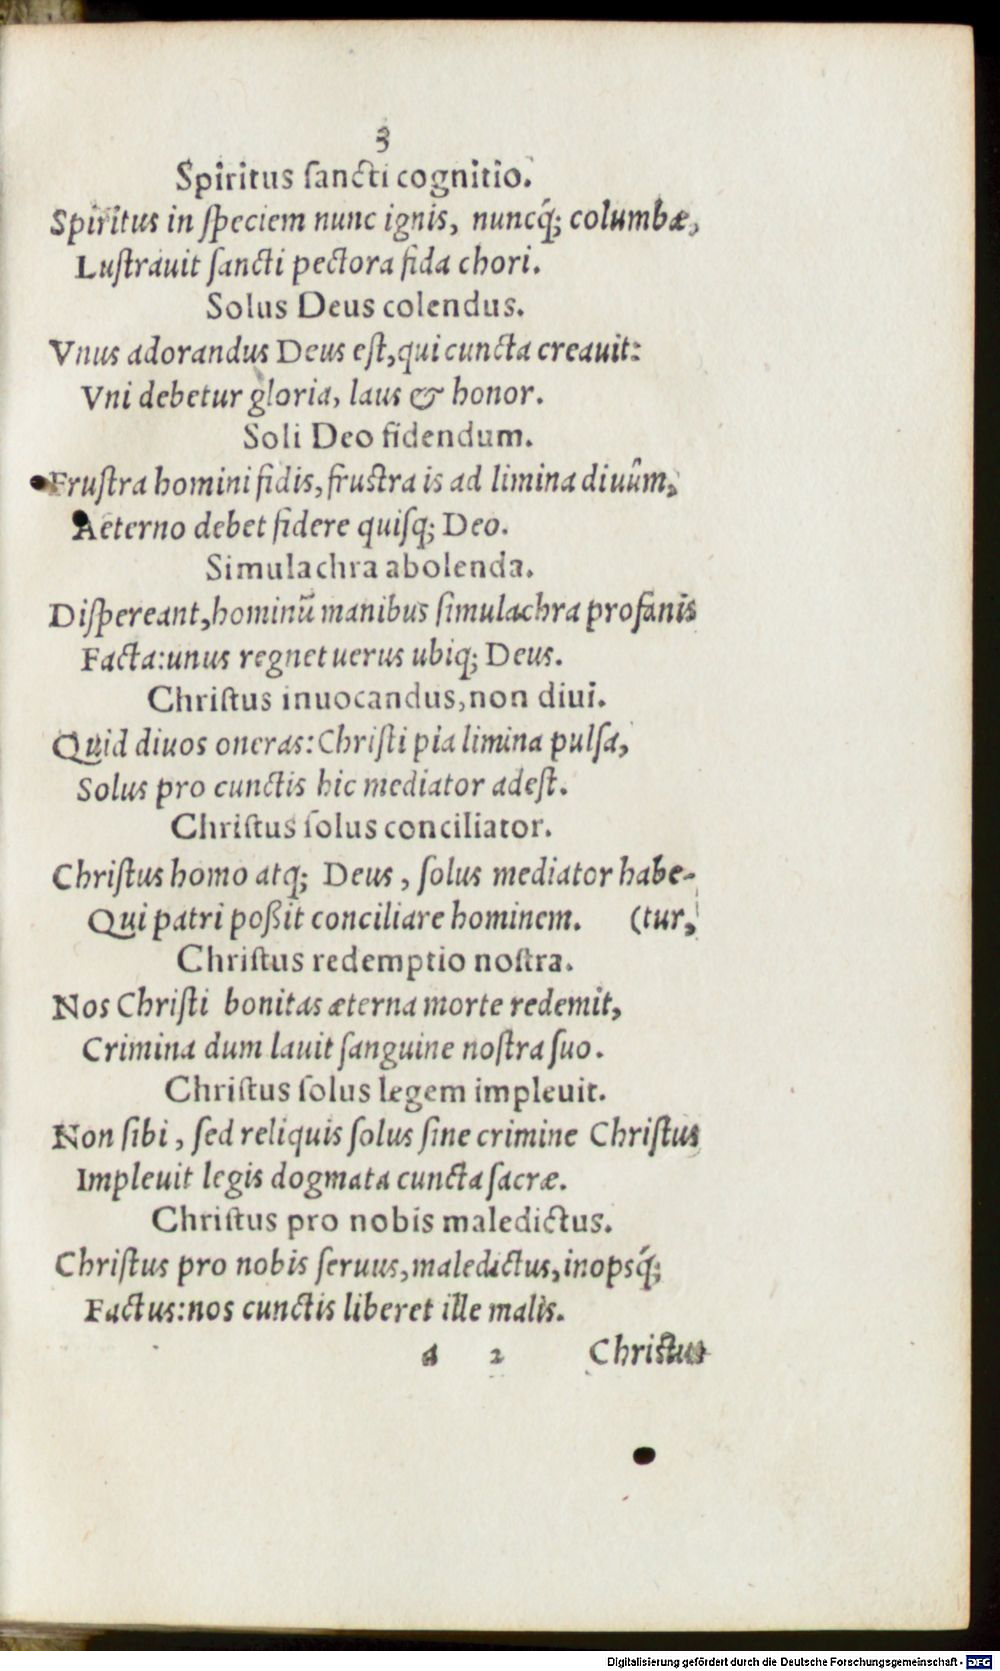 3
Spiritus ſancti cognitio.
Spiritus in ſpeciem nunc ignis, nuncq́; columbæ,
Luſtrauit ſancti pectora fida chori.
Solus Deus colendus.
Vnus adorandus Deus eſt, qui cuncta creauit:
Vni debetur gloria, laus & honor.
Soli Deo fidendum.
Fruſtra homini fidis, fruſtra is ad limina diuûm,
Aeterno debet fidere quiſq; Deo.
Simulachra abolenda.
Diſpereant, hominũ manibus ſimulachra profanis
Facta: unus regnet uerus ubiq; Deus.
Chriſtus inuocandus, non diui.
Quid diuos oneras: Chriſti pia limina pulſa,
Solus pro cunctis hic mediator adeſt.
Chriſtus ſolus conciliator.
Chriſtus homo atq; Deus, ſolus mediator habe-
Qui patri poßit conciliare hominem. (tur,
Chriſtus redemptio noſtra.
Nos Chriſti bonitas æterna morte redemit,
Crimina dum lauit ſanguine noſtra ſuo.
Chriſtus ſolus legem impleuit.
Non ſibi, ſed reliquis ſolus ſine crimine Chriſtus
Impleuit legis dogmata cuncta ſacræ.
Chriſtus pro nobis maledictus.
Chriſtus pro nobis ſeruus, maledictus, inopsq́;
Factus: nos cunctis liberet ille malis.
a 2 Chriſtus
Digitalisierung gefördert durch die Deutsche Forschungsgemeinschaft - DFG